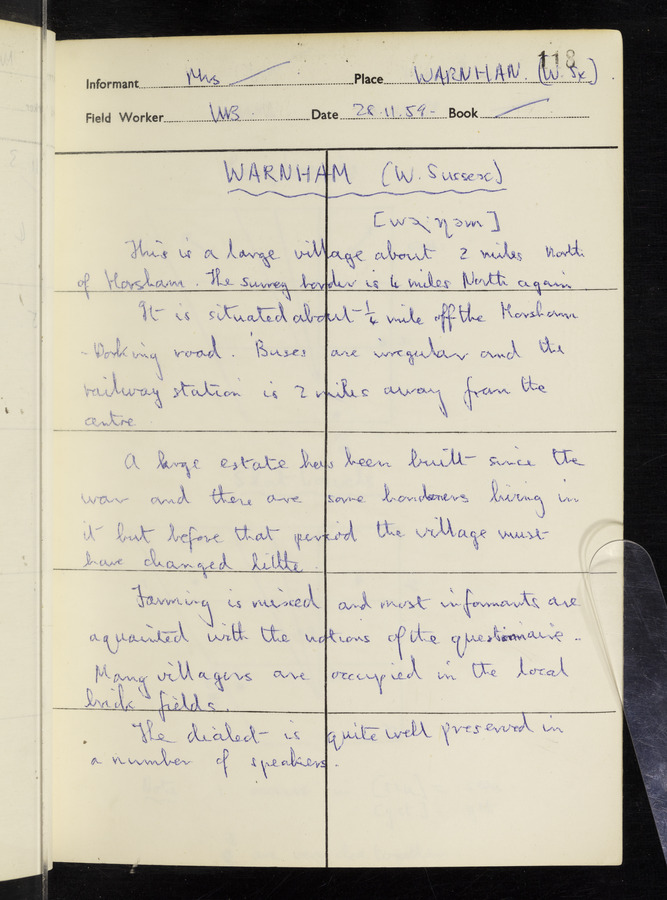 118
Informant Mrs Place WARNHAM. (W. Sx)
Field Worker WB. Date 28.11.59. Book
WARNHAM (W. Sussex)
This is a large village about 2 miles North
of Horsham. The Surrey border is 4 miles North again
It is situated about ¼ mile off the Horsham
- Dorking road. Buses are irregular and the
railway station is 2 miles away from the
centre
A large estate has been built since the
war and there are some londoners living in
it but before that period the village must
have changed little.
Farming is mixed and most informants are
aquainted with the notions of the questionnaire.
Many villagers are occupied in the local
brick fields.
The dialect is quite well preserved in
a number of speakers.